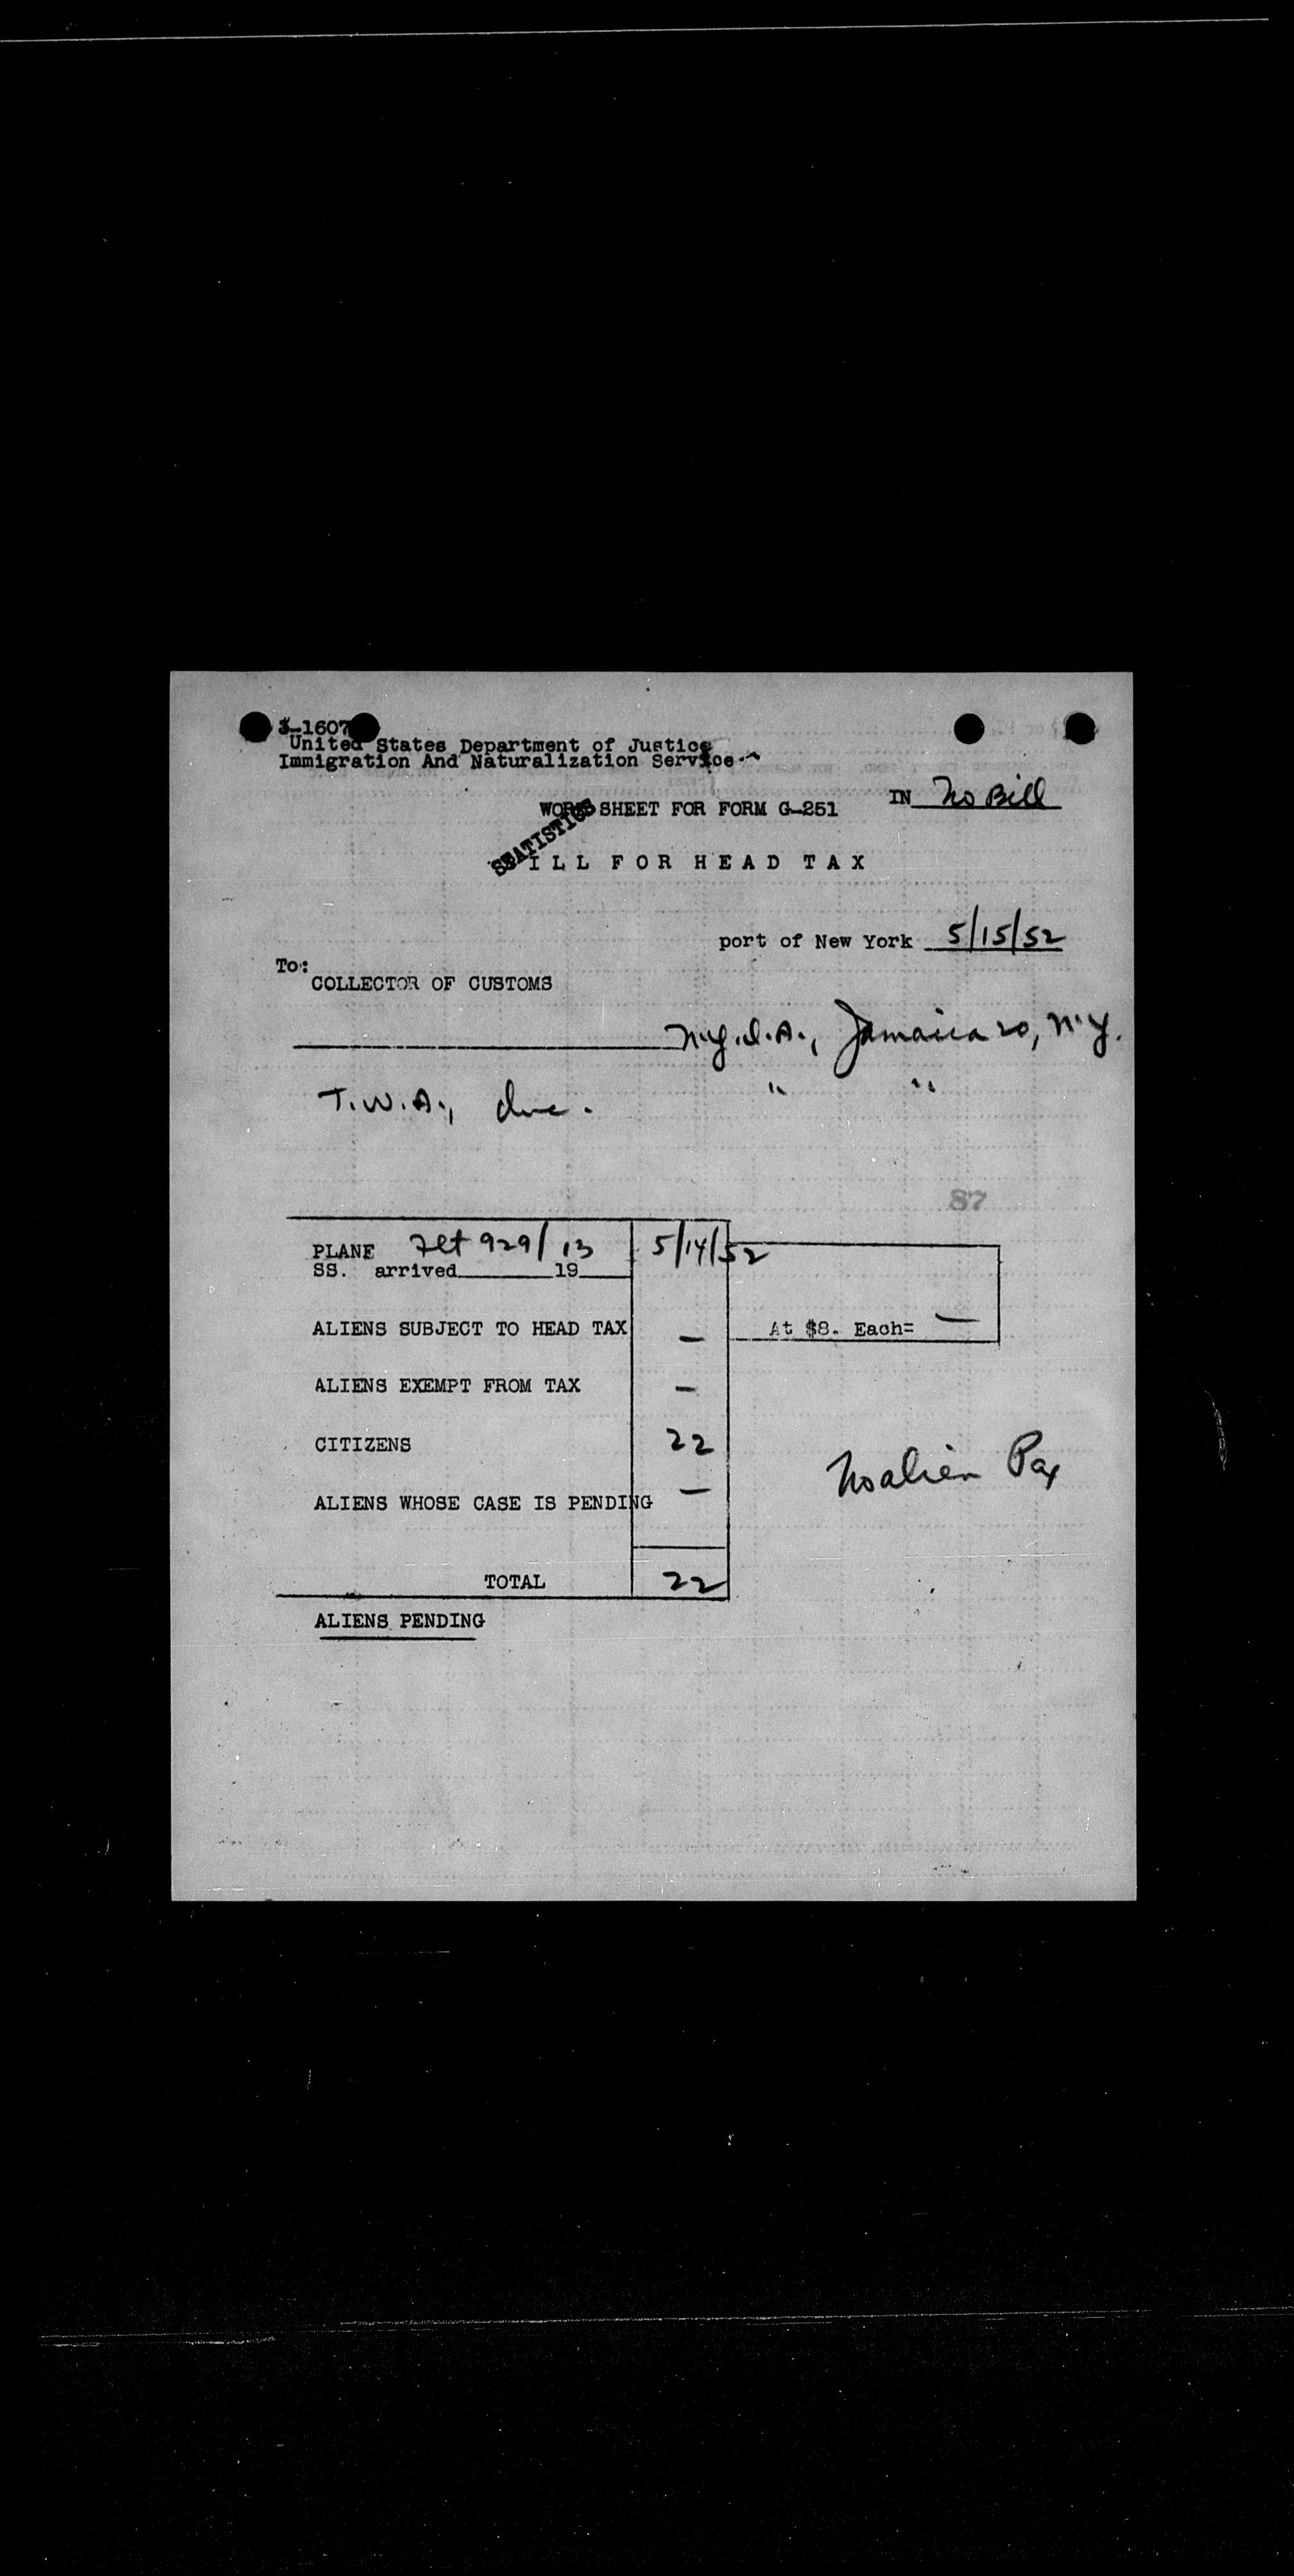 3-1607
United States Department of Justice
Immigration And Naturalization Service
IN No Bill
WORK SHEET FOR FORM G-251
STATISTICS
BILL FOR HEAD TAX
port of New York 5/15/52
To:
COLLECTOR OF CUSTOMS
N.Y.I.A., Jamaica 20, N.Y.
T.W.A., Inc. " "
87
PLANE Flt 929/13 5/14/52
SS. arrived 19
ALIENS SUBJECT TO HEAD TAX — At $8. Each= —
ALIENS EXEMPT FROM TAX —
CITIZENS 22
No alien Pax
ALIENS WHOSE CASE IS PENDING —
TOTAL 22
ALIENS PENDING